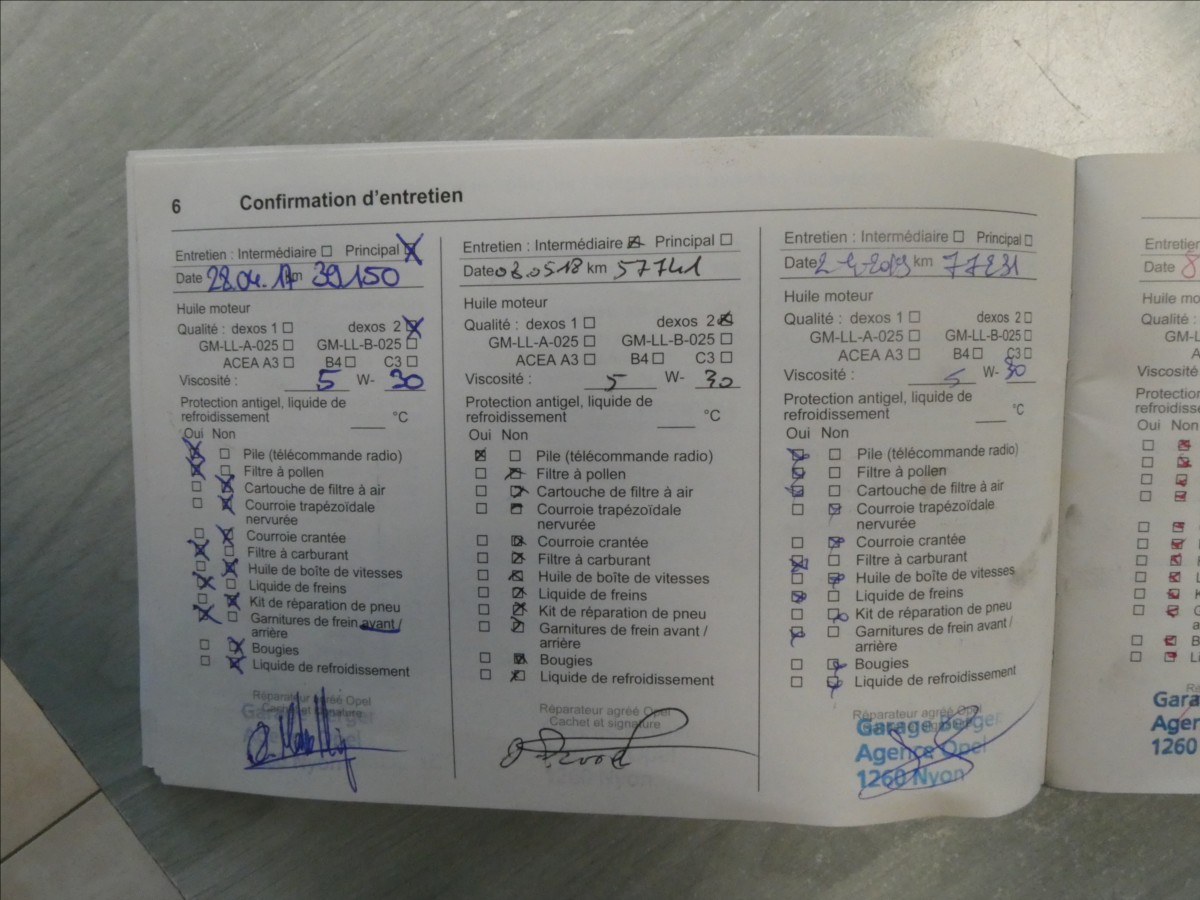 6 Confirmation d'entretien
Entretien : Intermédiaire ☐ Principal ☒
Date 28.04.17 km 39150
Huile moteur
Qualité : dexos 1 ☐ dexos 2 ☒
GM-LL-A-025 ☐ GM-LL-B-025 ☐
ACEA A3 ☐ B4 ☐ C3 ☐
Viscosité : 5 W- 30
Protection antigel, liquide de
refroidissement ____ °C
Oui Non
☒ ☐ Pile (télécommande radio)
☒ ☐ Filtre à pollen
☐ ☒ Cartouche de filtre à air
☐ ☒ Courroie trapézoïdale
nervurée
☐ ☒ Courroie crantée
☒ ☐ Filtre à carburant
☐ ☒ Huile de boîte de vitesses
☒ ☐ Liquide de freins
☐ ☒ Kit de réparation de pneu
☒ ☐ Garnitures de frein avant /
arrière
☐ ☒ Bougies
☐ ☒ Liquide de refroidissement
Réparateur agréé Opel
Cachet et signature
Entretien : Intermédiaire ☒ Principal ☐
Date 03.05.18 km 57741
Huile moteur
Qualité : dexos 1 ☐ dexos 2 ☒
GM-LL-A-025 ☐ GM-LL-B-025 ☐
ACEA A3 ☐ B4 ☐ C3 ☐
Viscosité : 5 W- 30
Protection antigel, liquide de
refroidissement ____ °C
Oui Non
☒ ☐ Pile (télécommande radio)
☐ ☒ Filtre à pollen
☐ ☒ Cartouche de filtre à air
☐ ☒ Courroie trapézoïdale
nervurée
☐ ☒ Courroie crantée
☐ ☒ Filtre à carburant
☐ ☒ Huile de boîte de vitesses
☐ ☒ Liquide de freins
☐ ☒ Kit de réparation de pneu
☐ ☒ Garnitures de frein avant /
arrière
☐ ☒ Bougies
☐ ☒ Liquide de refroidissement
Réparateur agréé Opel
Cachet et signature
Nyon
Entretien : Intermédiaire ☐ Principal ☐
Date 2-4-2019 km 77231
Huile moteur
Qualité : dexos 1 ☐ dexos 2 ☐
GM-LL-A-025 ☐ GM-LL-B-025 ☐
ACEA A3 ☐ B4 ☐ C3 ☐
Viscosité : 5 W- 30
Protection antigel, liquide de
refroidissement ____ °C
Oui Non
☒ ☐ Pile (télécommande radio)
☒ ☐ Filtre à pollen
☒ ☐ Cartouche de filtre à air
☐ ☒ Courroie trapézoïdale
nervurée
☐ ☒ Courroie crantée
☒ ☐ Filtre à carburant
☐ ☒ Huile de boîte de vitesses
☒ ☐ Liquide de freins
☐ ☒ Kit de réparation de pneu
☒ ☐ Garnitures de frein avant /
arrière
☐ ☒ Bougies
☐ ☒ Liquide de refroidissement
Réparateur agréé Opel
Garage Berger
Agence Opel
1260 Nyon
Date 8
Huile mo
Qualité :
GM-L
Viscosité
Protection
refroidisse
Oui Non
Gara
Agen
1260